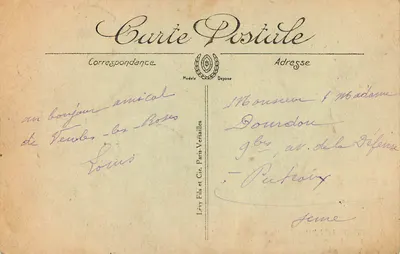 Carte Postale
Correspondance
Adresse
Modèle Déposé
un bonjour amical
de
Louis
Lévy Fils et Cie, Paris-Versailles
Monsieur & Madame
Dourdou
9bis av. de la Défense
Puteaux
Seine